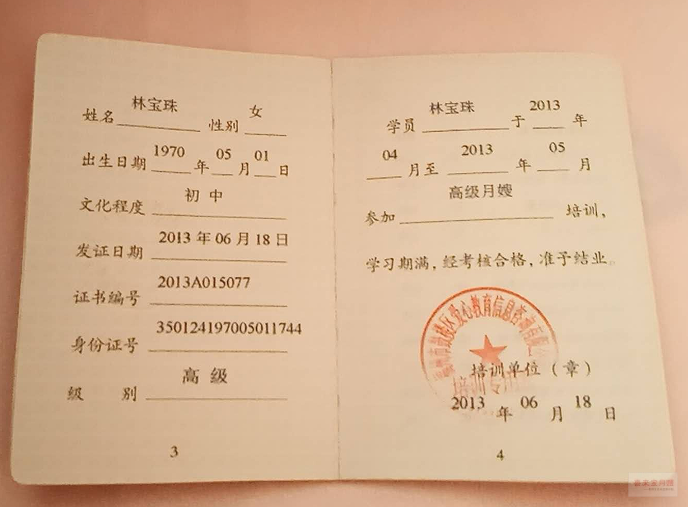 姓名 林宝珠 性别 女
出生日期 1970 年 05 月 01 日
文化程度 初中
发证日期 2013 年 06 月 18 日
证书编号 2013A015077
身份证号 350124197005011744
级 别 高 级
3
学员 林宝珠 于 2013 年
04 月至 2013 年 05 月
参加 高级月嫂 培训,
学习期满,经考核合格,准予结业。
爱心教育信息咨询有限
培训单位(章)
2013 年 06 月 18 日
4